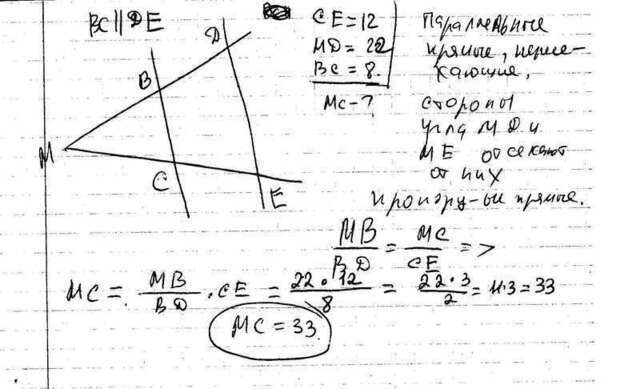 BC || DE
CE = 12
MD = 22
BC = 8.
MC - ?
Параллельные
прямые, пересе-
кающие,
стороны
угла MD и
ME отсекают
от них
пропор-ые прямые.
M
B
D
C
E
MB/BD = MC/CE =>
MC = MB/BD · CE = 22·12/8 = 22·3/2 = 11·3 = 33
MC = 33.